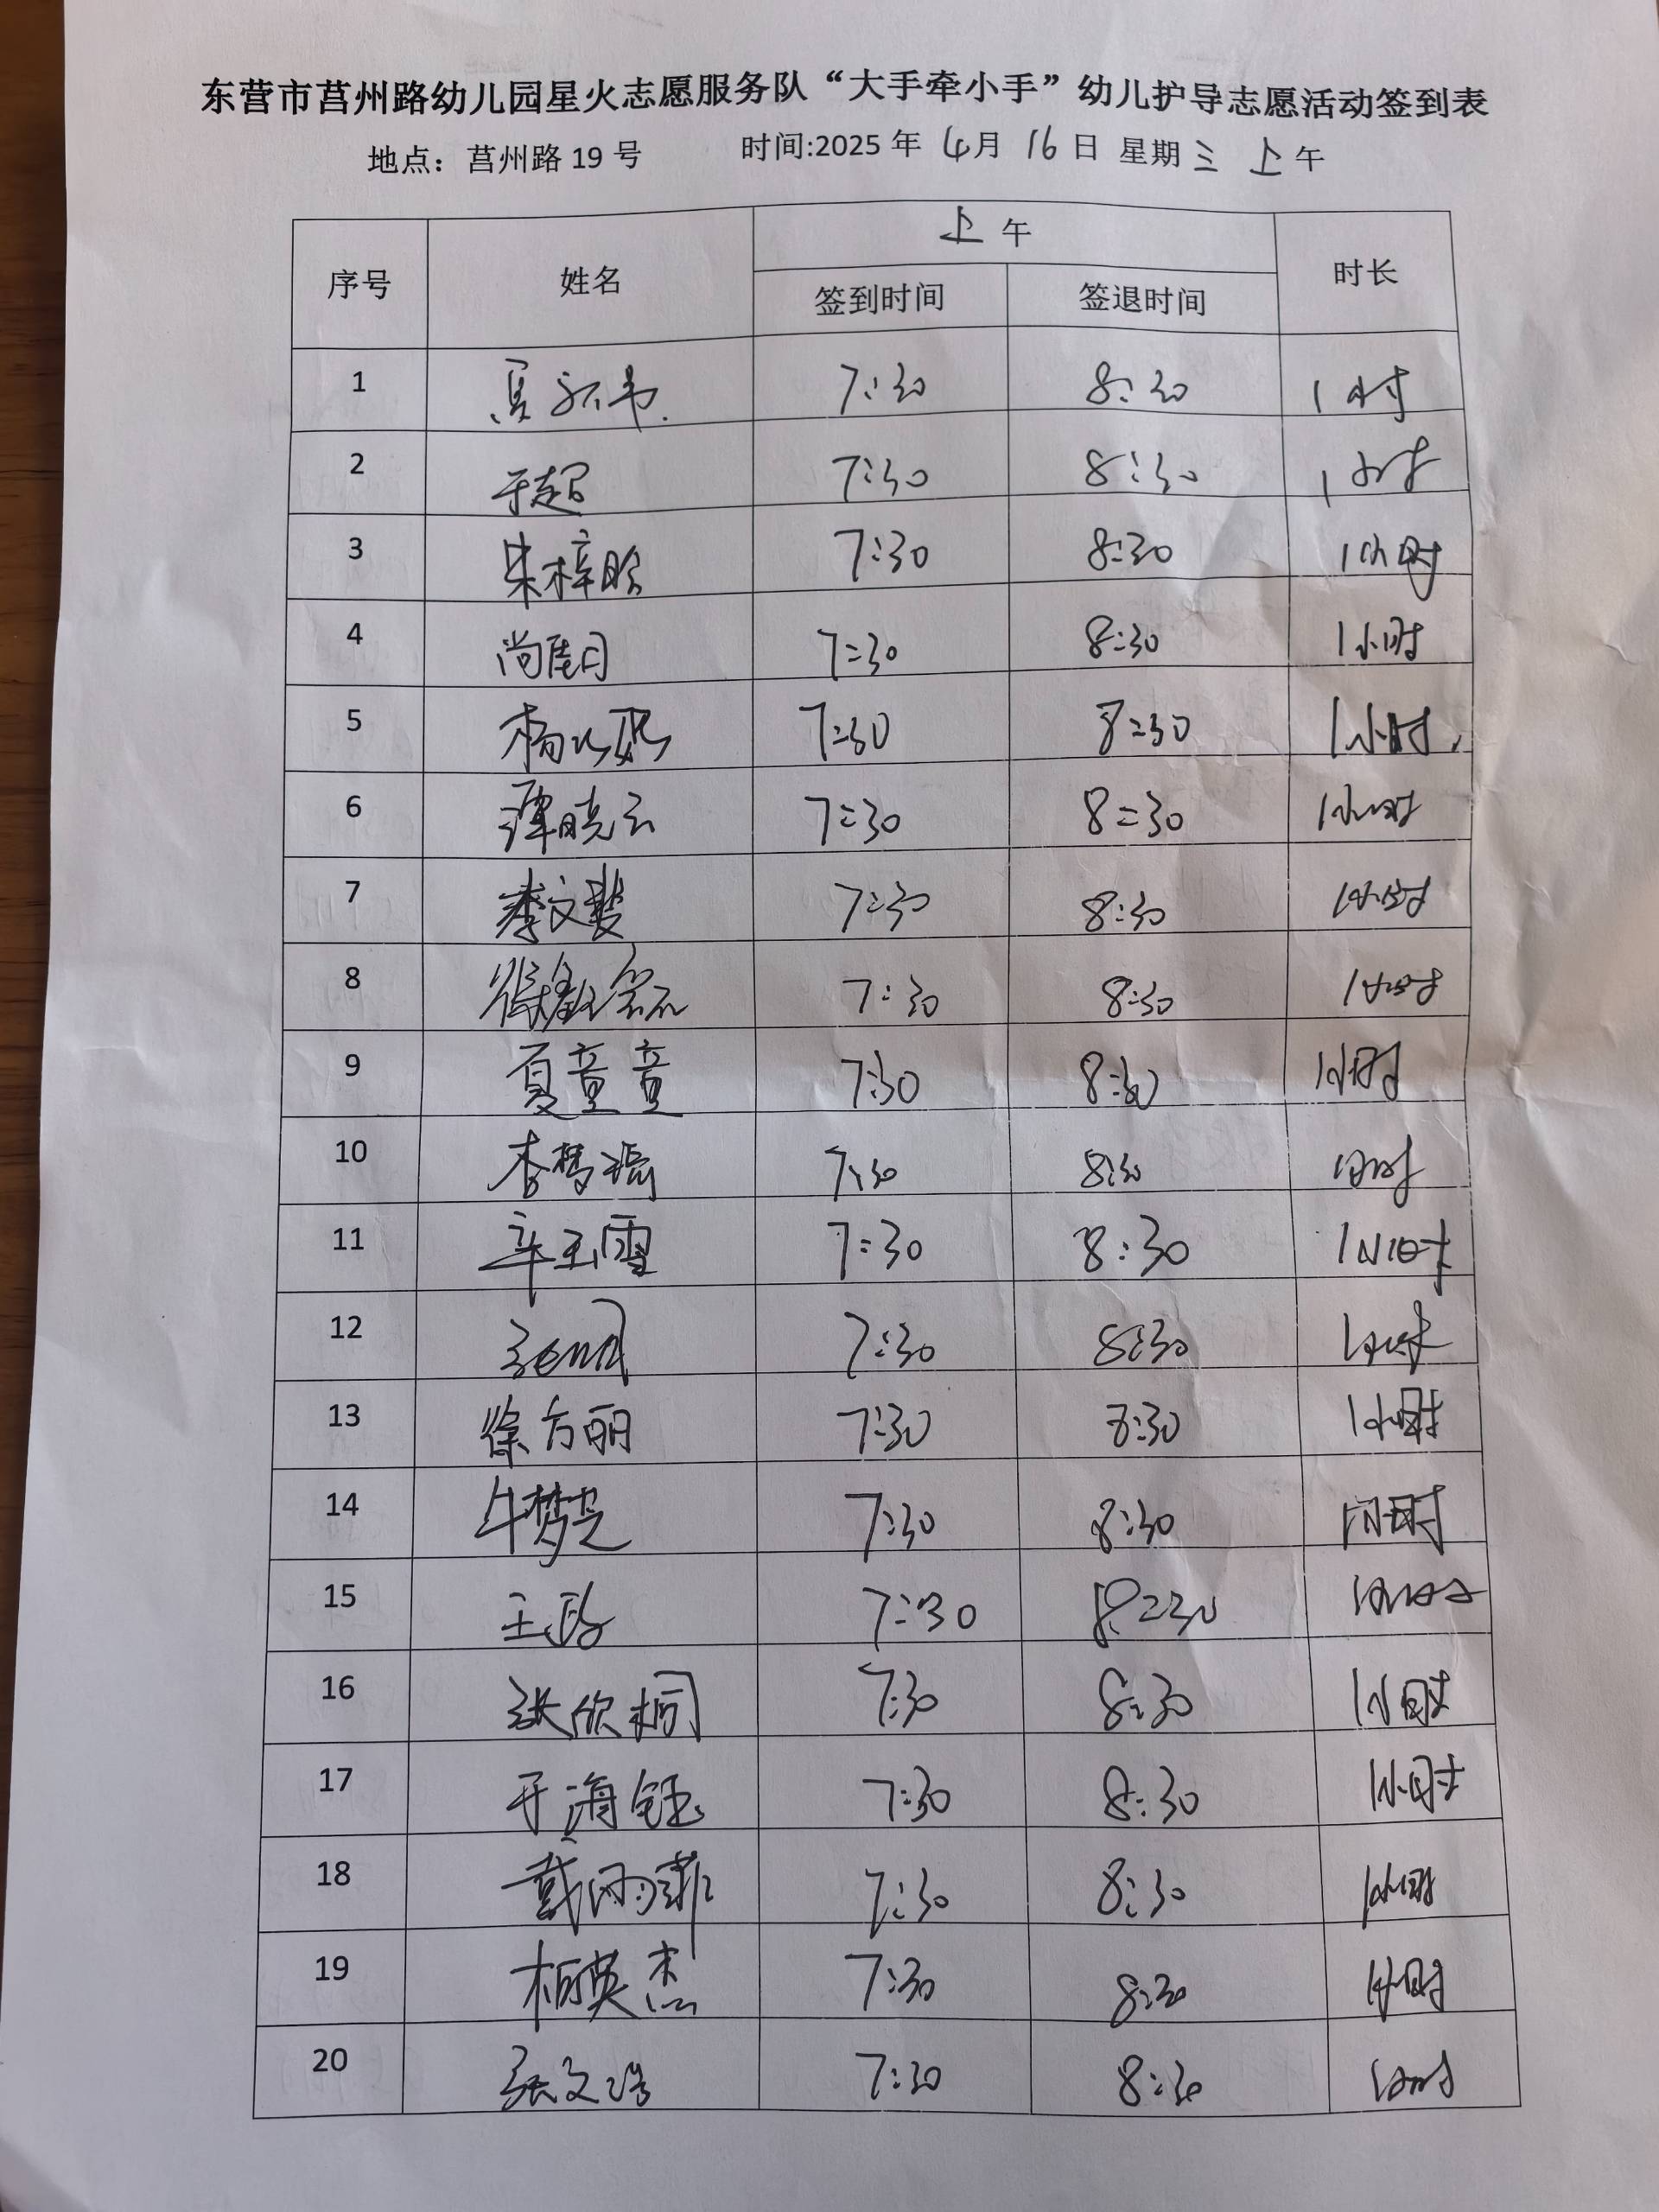 东营市莒州路幼儿园星火志愿服务队“大手牵小手”幼儿护导志愿活动签到表
地点：莒州路 19 号 时间:2025 年 4月 16 日 星期三 上午
序号 姓名 上午 时长
签到时间 签退时间
1 7:30 8:30 1小时
2 于超 7:30 8:30 1小时
3 朱梓晗 7:30 8:30 1小时
4 尚 月 7:30 8:30 1小时
5 杨 7:30 8:30 1小时
6 谭晓云 7:30 8:30 1小时
7 李文斐 7:30 8:30 1小时
8 7:30 8:30 1小时
9 夏童童 7:30 8:30 1小时
10 李梦瑶 7:30 8:30 1小时
11 辛玉雪 7:30 8:30 1小时
12 7:30 8:30 1小时
13 徐方丽 7:30 8:30 1小时
14 牛梦芝 7:30 8:30 1小时
15 王 7:30 8:30 1小时
16 张欣桐 7:30 8:30 1小时
17 于海钰 7:30 8:30 1小时
18 戴雨菲 7:30 8:30 1小时
19 柏英杰 7:30 8:30 1小时
20 张文 7:30 8:30 1小时